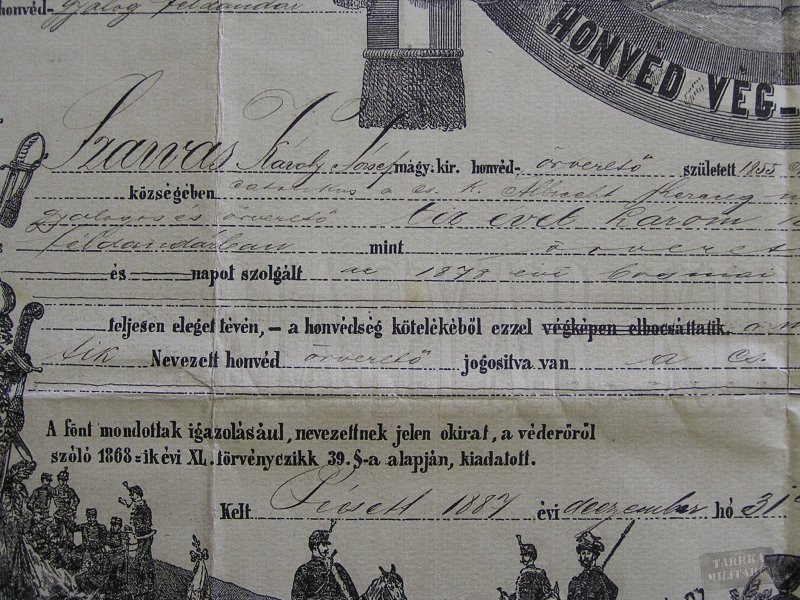 honvéd- gyalog féldandár
HONVÉD VÉG-
Szarvas Károly József magy. kir. honvéd- őrvezető született 1855
községében a cs. k. Albrecht herczeg
gyalog és őrvezető tíz évet három
féldandárban mint őrvezet
és napot szolgált az 1878 évi bosniai
teljesen eleget tévén, – a honvédség kötelékéből ezzel végképen elbocsáttatik. a
tik Nevezett honvéd őrvezető jogositva van a cs.
A fönt mondottak igazolásául, nevezettnek jelen okirat, a véderőről
szóló 1868=ik évi XL. törvényczikk 39. §-a alapján, kiadatott.
Kelt Pécsett 1887 évi deczember hó 31
TARRKA
MILITARI